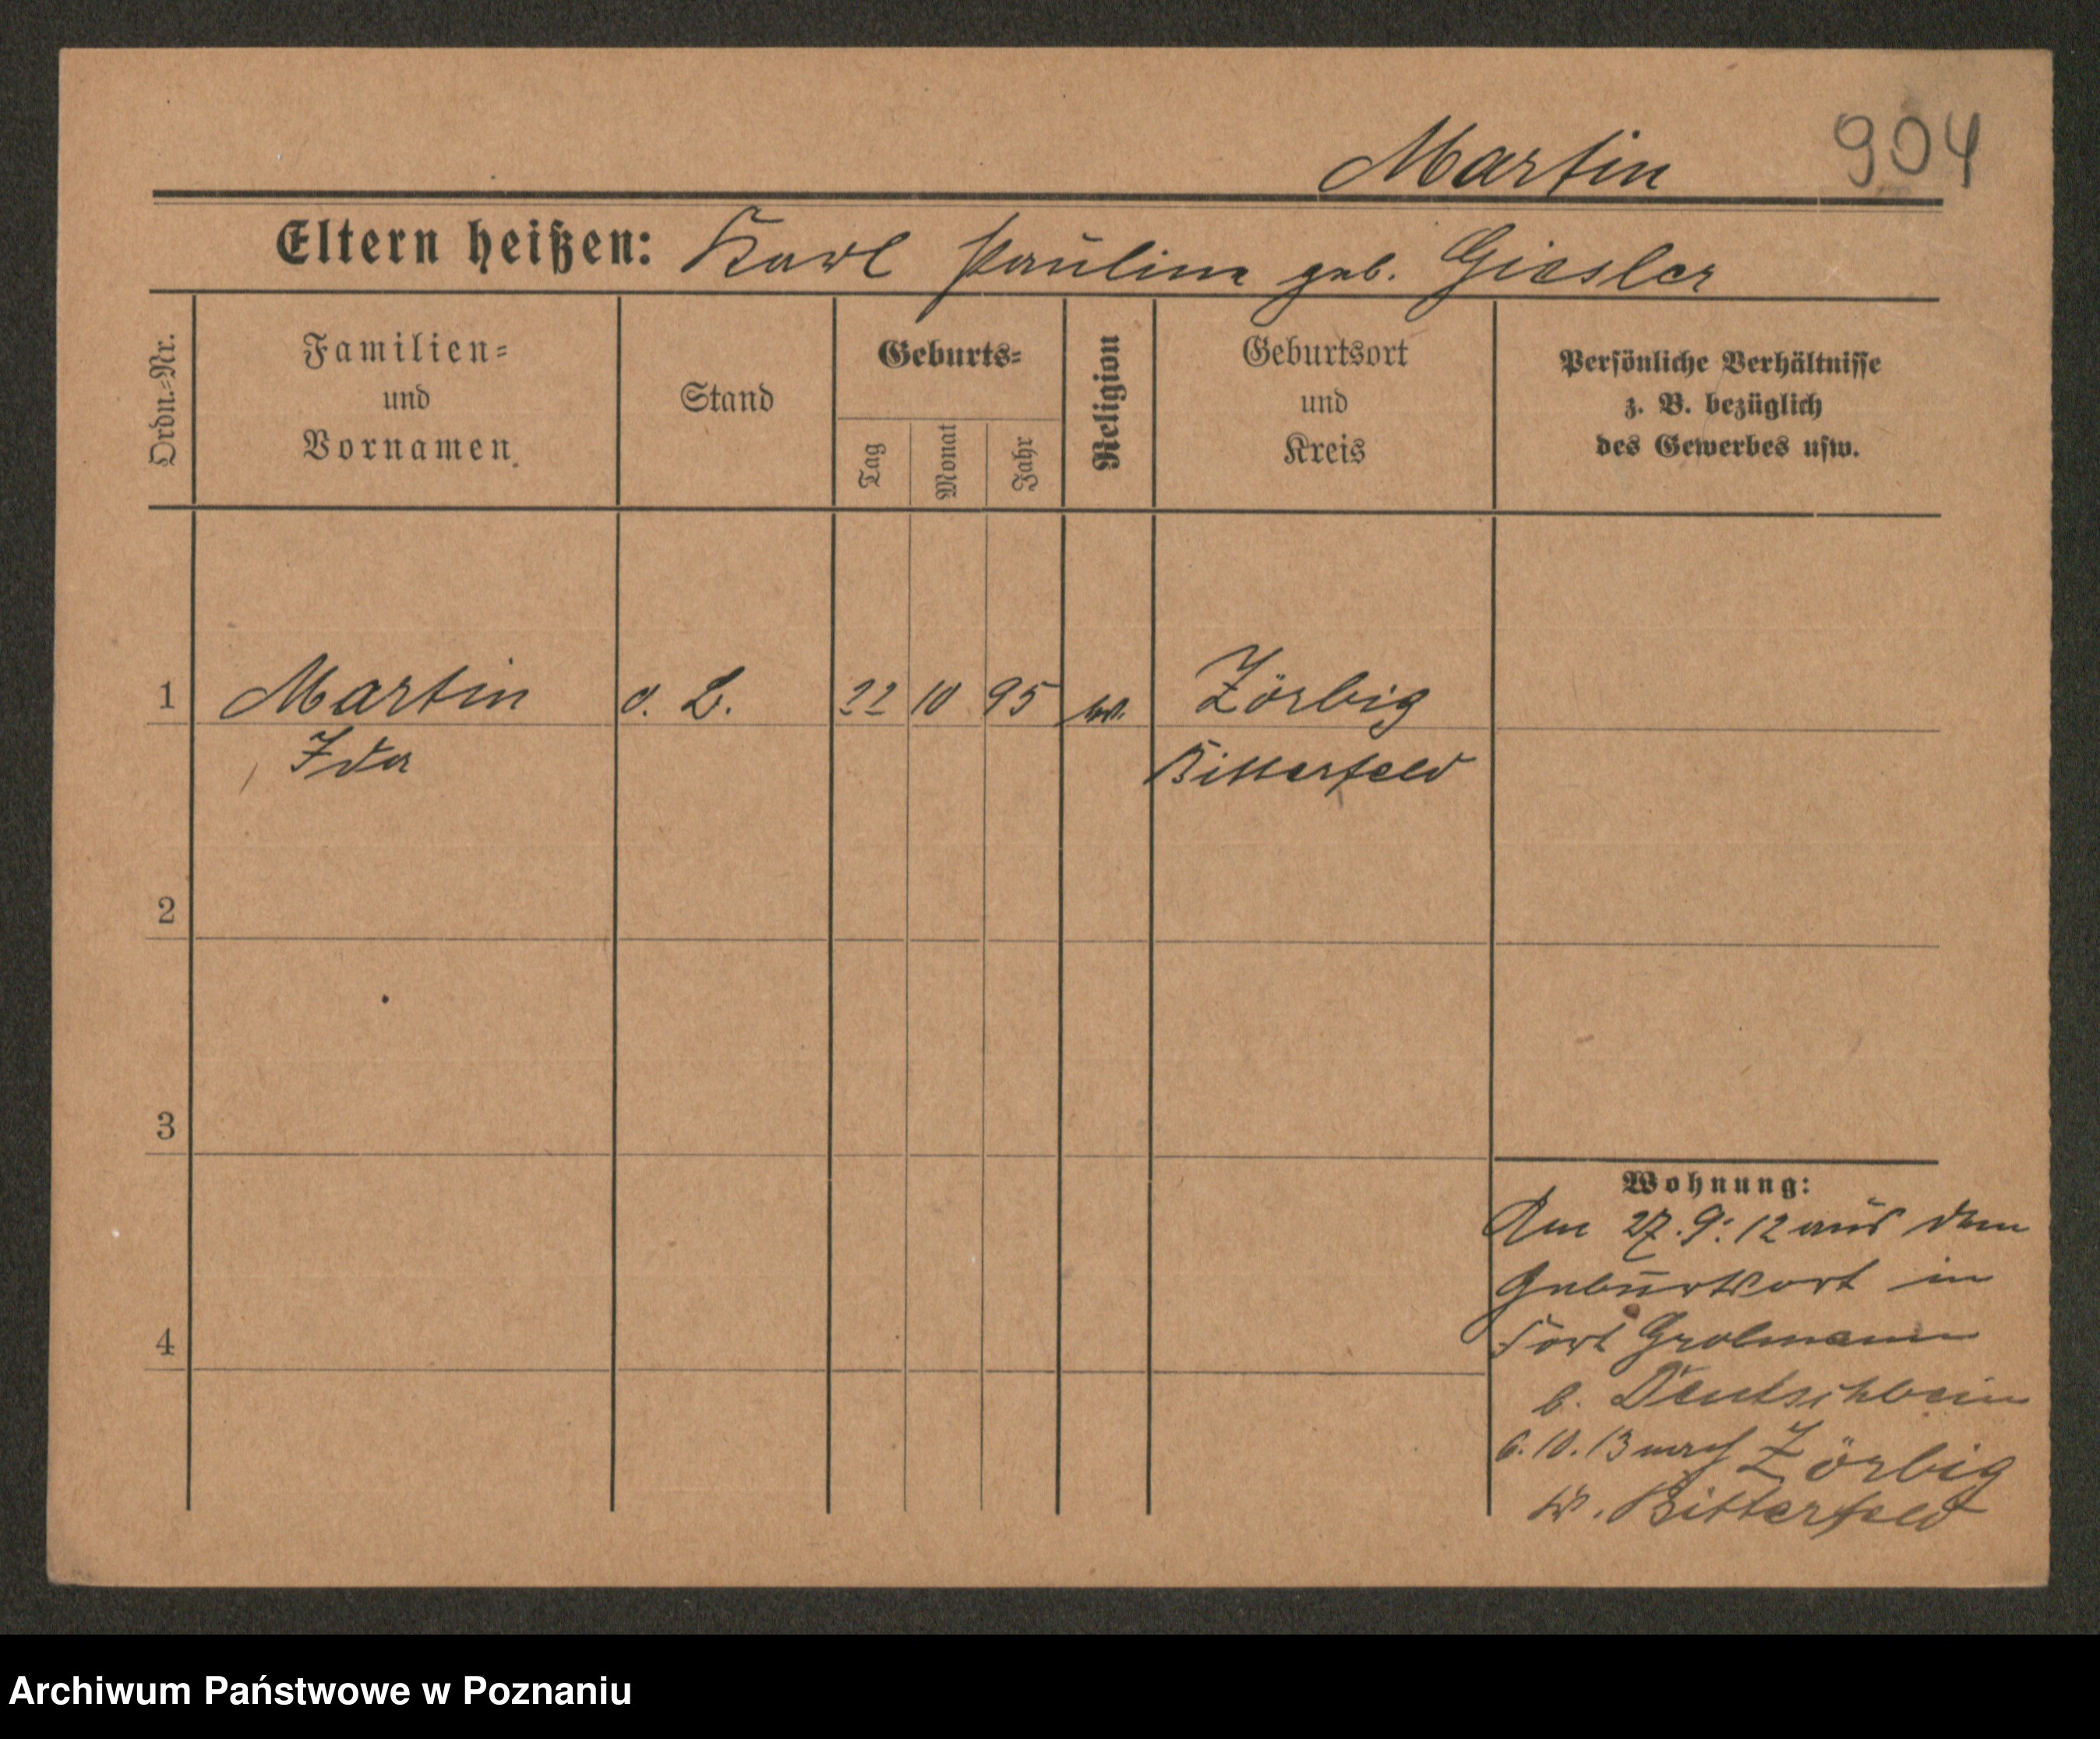 Martin 904
Eltern heißen: Karl Pauline geb. Giesler
Ordn.=Nr.
Familien=
und
Vornamen.
Stand
Geburts=
Tag
Monat
Jahr
Religion
Geburtsort
und
Kreis
Persönliche Verhältnisse
z. B. bezüglich
des Gewerbes usw.
1 Martin o. B. 22 10 95 ev. Zörbig
Ida Bitterfeld
2
3
4
Wohnung:
Am 27.9.12 aus dem
Geburtsort in
Fort Grolmann
b. Deutschbein
6.10.13 nach Zörbig
Kr. Bitterfeld
Archiwum Państwowe w Poznaniu